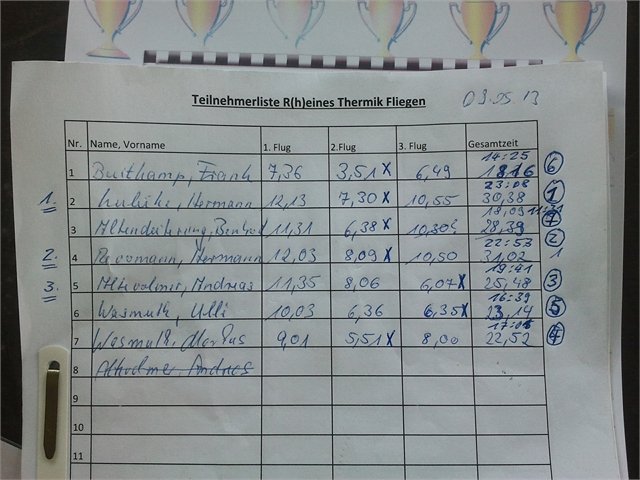 Teilnehmerliste R(h)eines Thermik Fliegen 03.05.13
Nr. Name, Vorname 1. Flug 2.Flug 3. Flug Gesamtzeit
14:25
1 Frank 7,36 3,51 X 6,49 18,16 6
23:08
1. 2 Hermann 12,13 7,30 X 10,55 30,38 1
18,09
3 11,31 6,38 X 28,39
22:53 2
2. 4 Hermann 12,03 8,09 X 10,50 31,02 1
19:41
3. 5 Andreas 11,35 8,06 6,07 X 25,48 3
16:39
6 Wasmuth, Ulli 10,03 6,36 6,35 X 23,14 5
7 Wasmuth, Markus 9,01 5,51 X 8,00 22,52 4
8
9
10
11